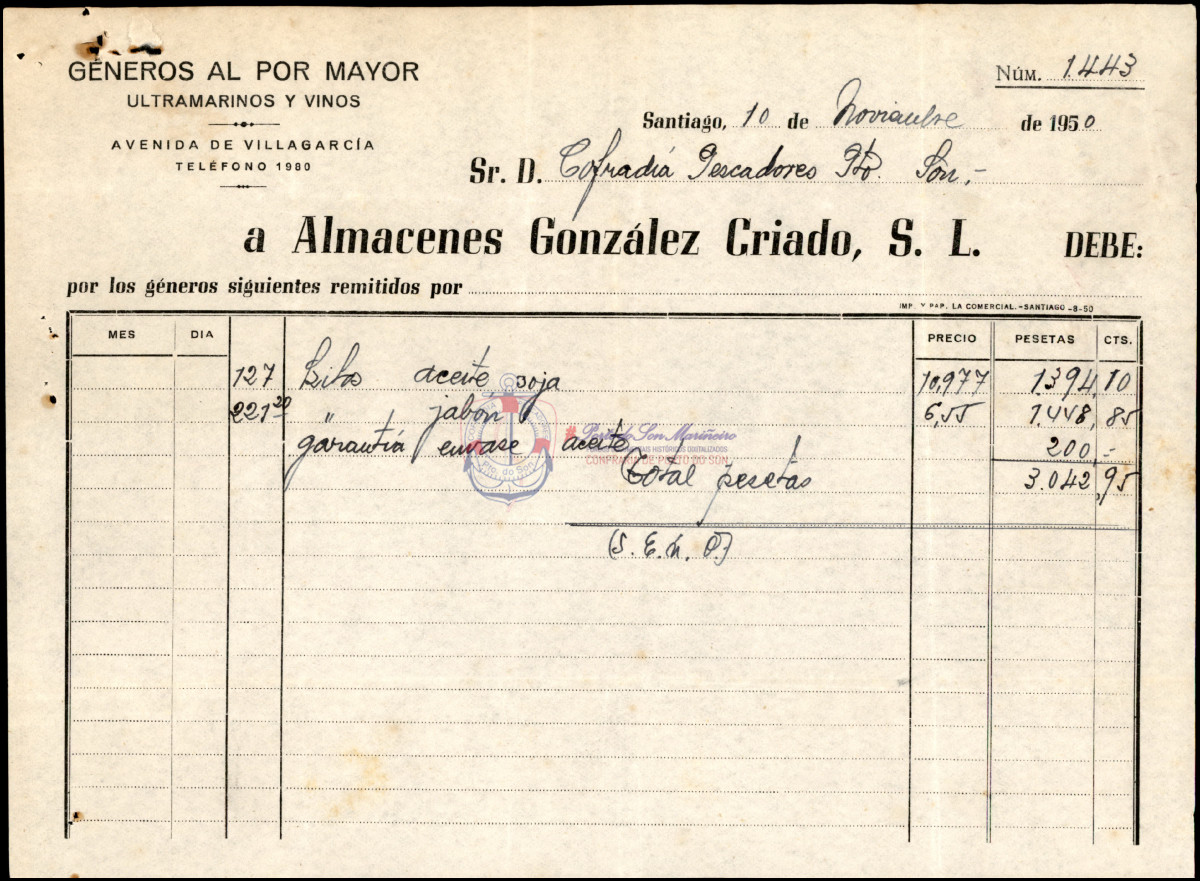 GÉNEROS AL POR MAYOR
ULTRAMARINOS Y VINOS
AVENIDA DE VILLAGARCÍA
TELÉFONO 1980
NÚM. 1.443
Santiago, 10 de Noviembre de 1950
Sr. D. Cofradiá Pescadores Pto. Son,-
a Almacenes González Criado, S. L. DEBE:
por los géneros siguientes remitidos por
IMP. Y PAP. LA COMERCIAL.-SANTIAGO-8-50
MES DIA PRECIO PESETAS CTS.
127 Kilos aceite soja 10,977 1.394,10
221,20 " jabón 6,55 1.448,85
garantía envase aceite 200,-
Porto do Son Mariñeiro
HISTÓRICOS DIGITALIZADOS
CONFRARÍA DE PORTO DO SON
Pto. do Son
Total pesetas 3.042,95
(S. E. u. O.)